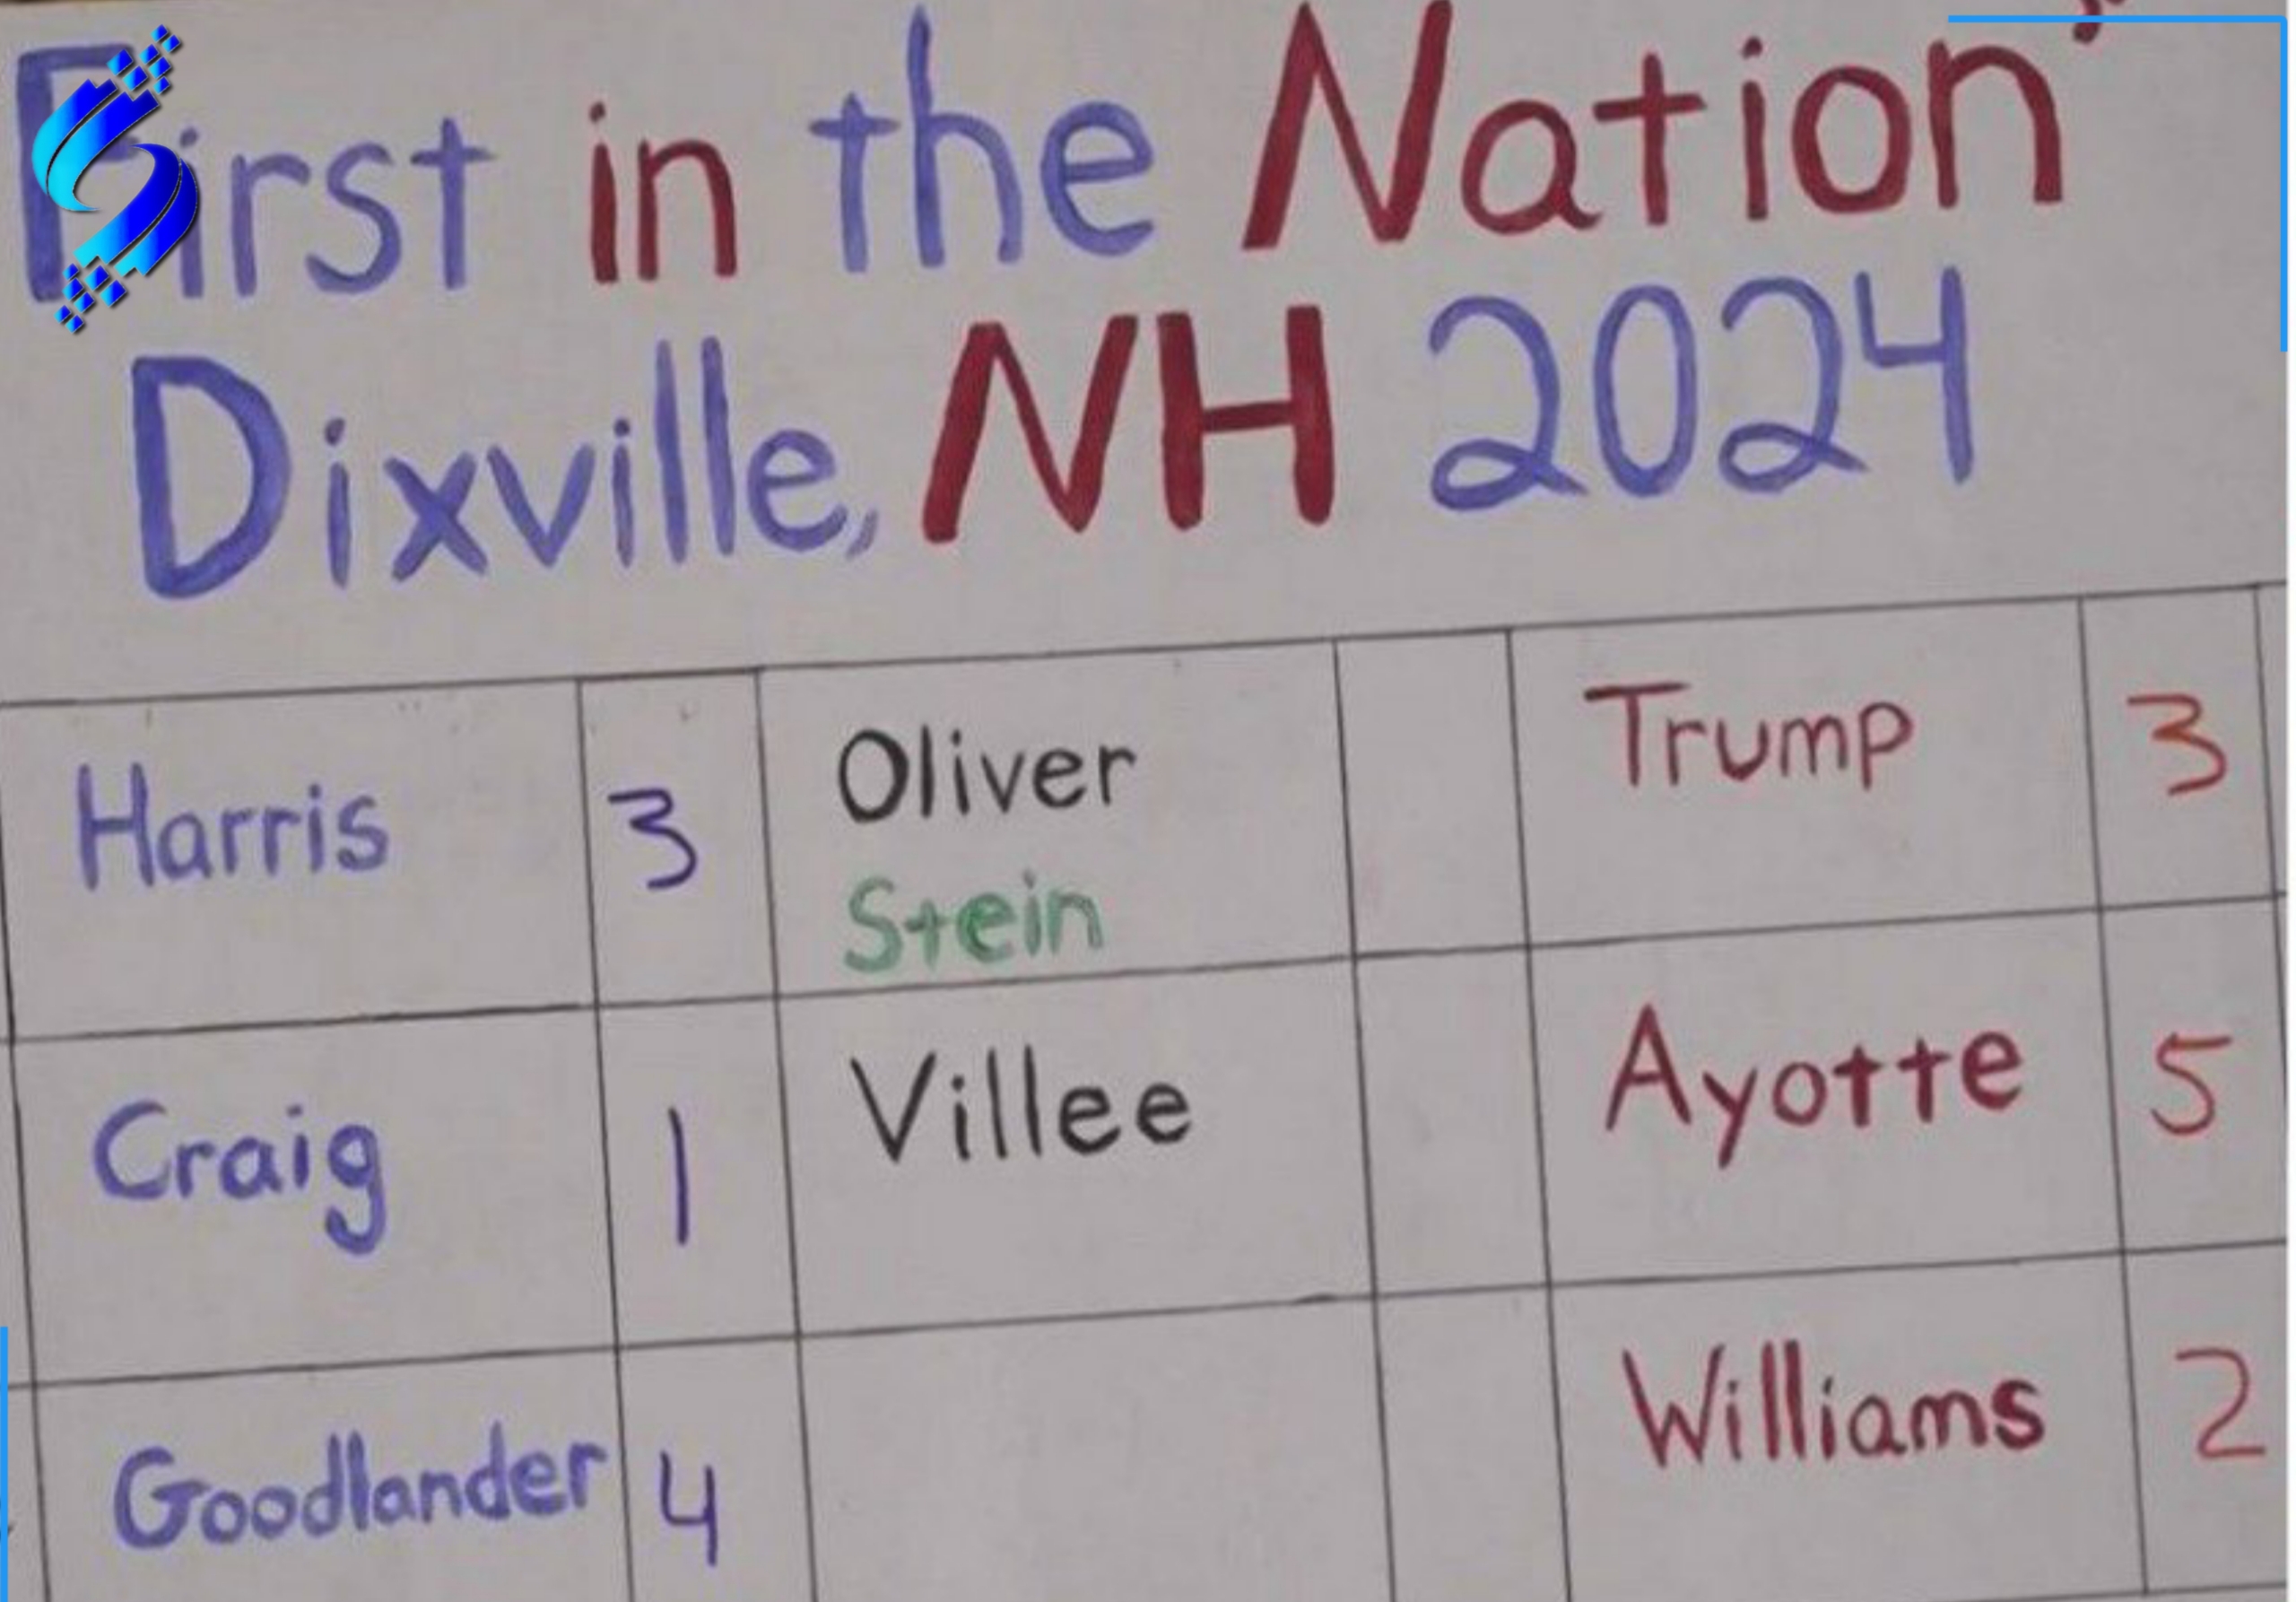 First in the Nation"
Dixville, NH 2024
Harris 3 Oliver Trump 3
Stein
Craig 1 Villee Ayotte 5
Goodlander 4 Williams 2